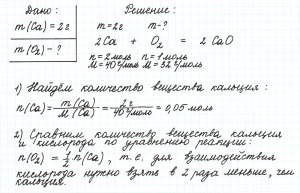 Дано:
m(Ca) = 2г
m(O₂) - ?
Решение:
m=2г m-?
2Ca + O₂ = 2CaO
n=2моль n=1моль
M=40г/моль M=32г/моль
1) Найдём количество вещества кальция:
n(Ca) = m(Ca)/M(Ca) = 2г/40г/моль = 0,05 моль
2) Сравним количество вещества кальция
и кислорода по уравнению реакции:
n(O₂) = 1/2 n(Ca), т.е. для взаимодействия
кислорода нужно взять в 2 раза меньше, чем
кальция.